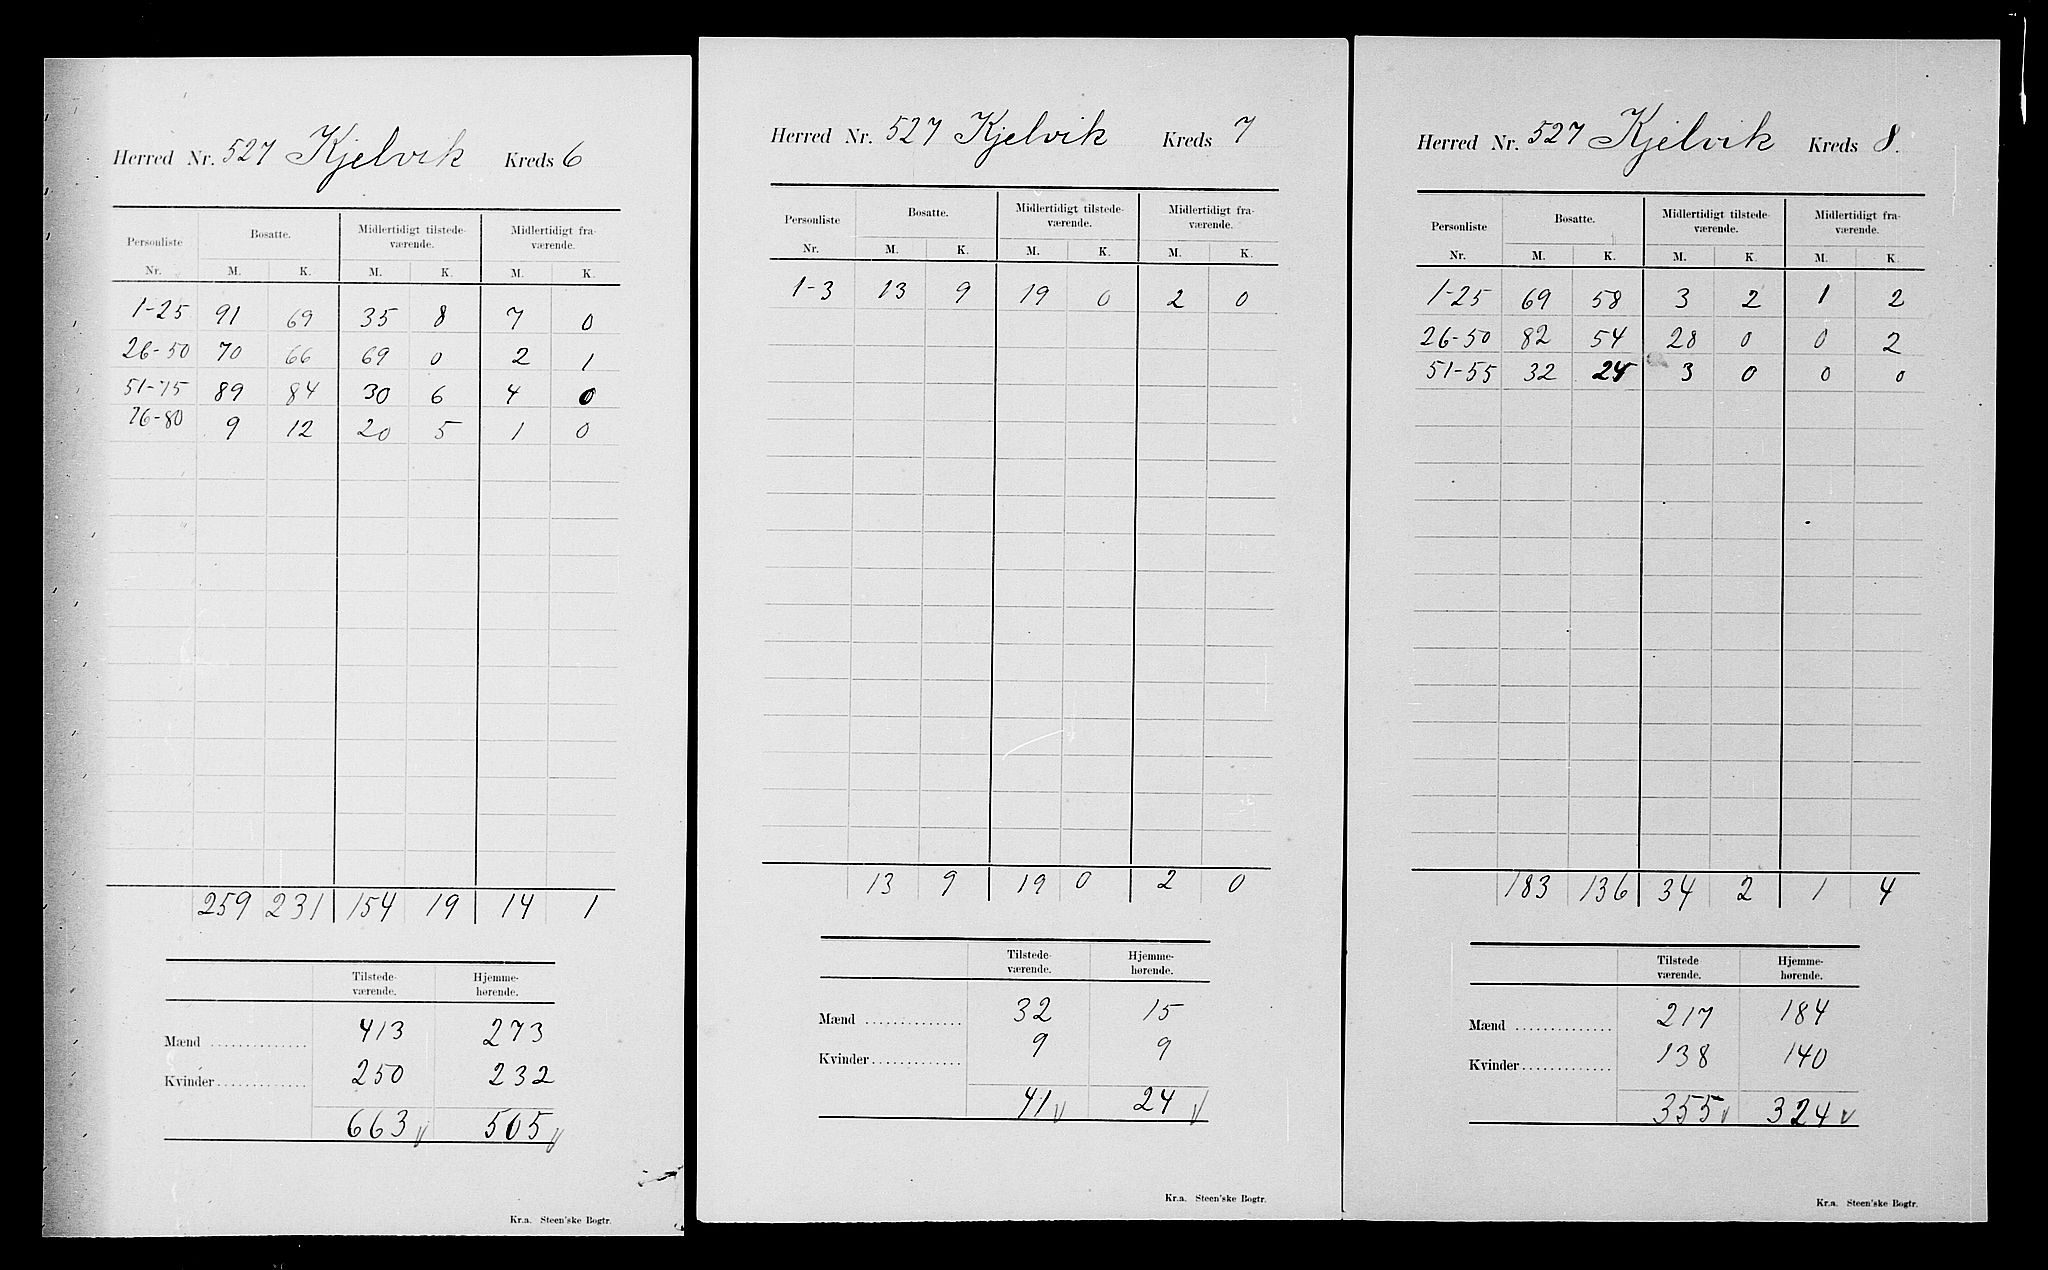 Herred Nr. 527 Kjelvik Kreds 6
Personliste Bosatte. Midlertidigt tilstede- Midlertidigt fra-
værende. værende.
Nr. M. K. M. K. M. K.
1-25 91 69 35 8 7 0
26-50 70 66 69 0 2 1
51-75 89 84 30 6 4 0
76-80 9 12 20 5 1 0
259 231 154 19 14 1
Tilstede- Hjemme-
værende. hørende.
Mænd 413 273
Kvinder 250 232
663 505
Kr.a. Steen'ske Bogtr.
Herred Nr. 527 Kjelvik Kreds 7
Personliste Bosatte. Midlertidigt tilstede- Midlertidigt fra-
værende. værende.
Nr. M. K. M. K. M. K.
1-3 13 9 19 0 2 0
13 9 19 0 2 0
Tilstede- Hjemme-
værende. hørende.
Mænd 32 15
Kvinder 9 9
41 24
Kr.a. Steen'ske Bogtr.
Herred Nr. 527 Kjelvik Kreds 8.
Personliste Bosatte. Midlertidigt tilstede- Midlertidigt fra-
værende. værende.
Nr. M. K. M. K. M. K.
1-25 69 58 3 2 1 2
26-50 82 54 28 0 0 2
51-55 32 24 3 0 0 0
183 136 34 2 1 4
Tilstede Hjemme-
værende. hørende.
Mænd 217 184
Kvinder 138 140
355 324
Kr.a. Steen'ske Bogtr.